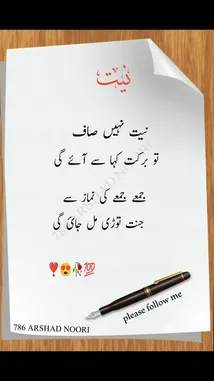 نیت
نیت نہیں صاف
تو برکت کہا سے آئے گی
جمعے جمعے کی نماز سے
جنت توڑی مل جائ گی
❣️😍🥀💯
please follow me
786 ARSHAD NOORI
786 ARSHAD NOORI